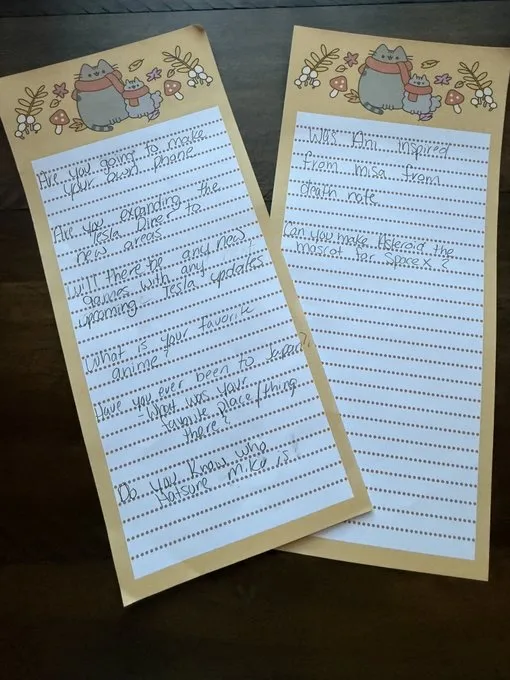 Are you going to make
your own phone
Are you expanding the
Tesla Diner to
new areas
Will there be any new
games with any
upcoming Tesla updates
What is your favorite
anime?
Have you ever been to Japan?
What was your
favorite place/thing
there?
Do you know who
Hatsune Miku is
Was Ani inspired
from misa from
death note
Can you make Asteroid the
mascot for SpaceX?